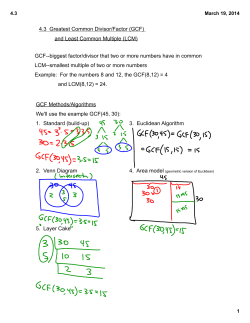 4.3
March 19, 2014
4.3 Greatest Common Divisor/Factor (GCF)
and Least Common Multiple (LCM)
GCF--biggest factor/divisor that two or more numbers have in common
LCM--smallest multiple of two or more numbers
Example: For the numbers 8 and 12, the GCF(8,12) = 4
and LCM(8,12) = 24.
GCF Methods/Algorithms
We'll use the example GCF(45, 30):
1. Standard (build-up)
45 30
3. Euclidean Algorithm
30=2·3·5
GCF(30,45)=3·5=15
GCF(30,45)=GCF(30,15)
=GCF(15,15)=15
2. Venn Diagram
4. Area model (geometric version of Euclidean)
(intersect)
30 45
2 3 5 3
GCF(30,45)=3·5=15
45
30 15
30
30
GCF(30,45)=15
5. "Layer Cake"
3 30 45
5 10 15
2 3
GCF(30,45)=3·5=15
1